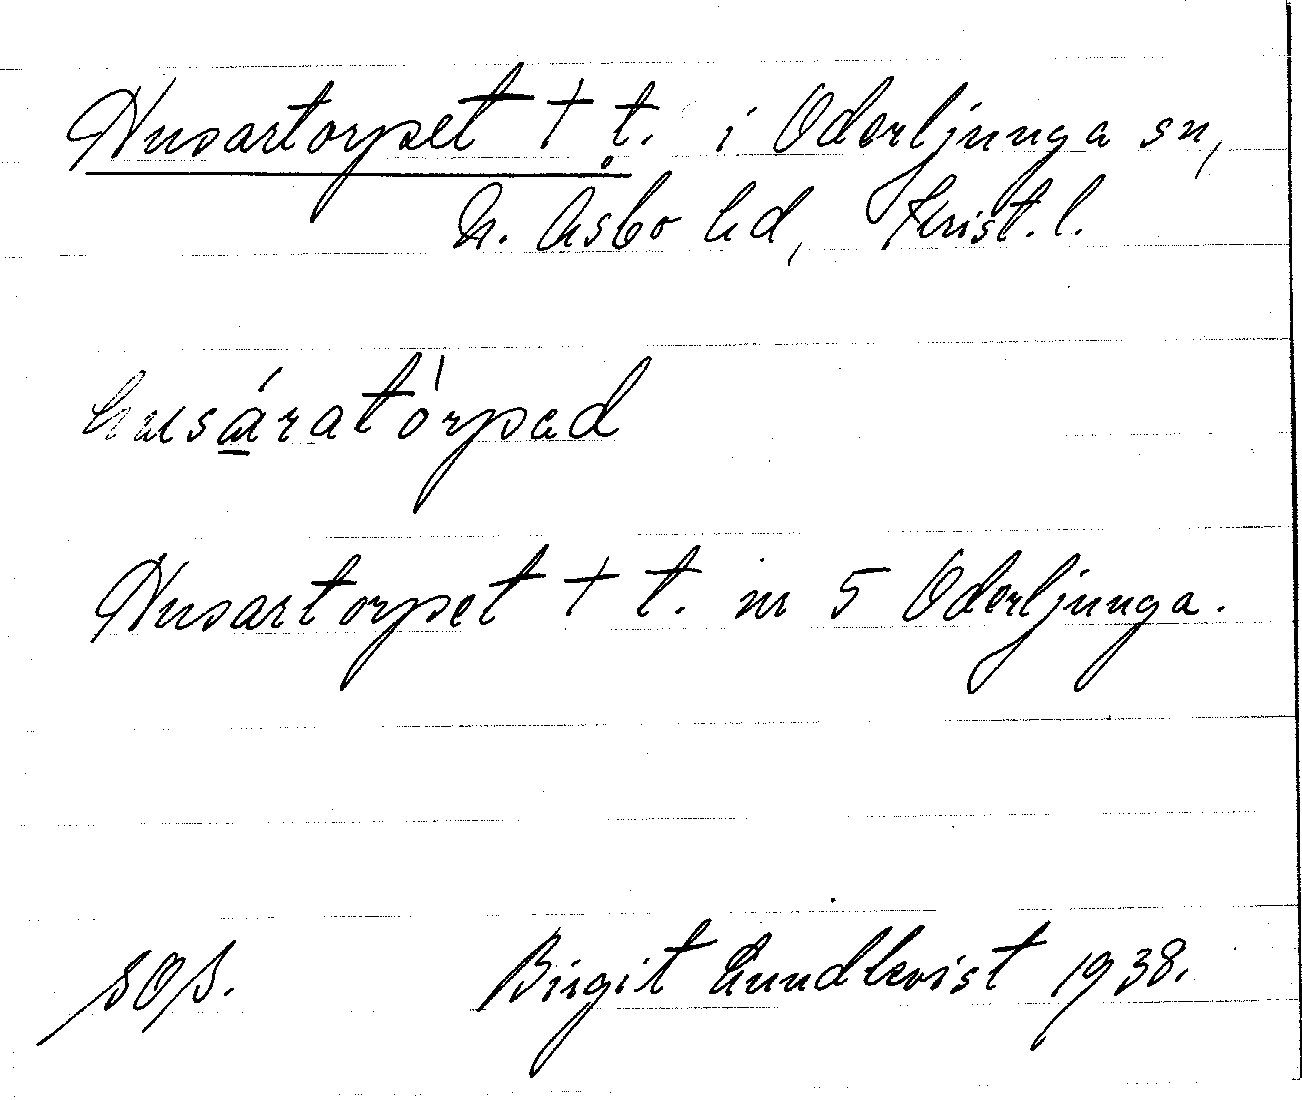 Husartorpet † t. i Oderljunga sn,
N. Åsbo hd, Krist. l.
husáratórpad
Husartorpet † t. nr 5 Oderljunga.
sos. Birgit Lundkvist 1938.